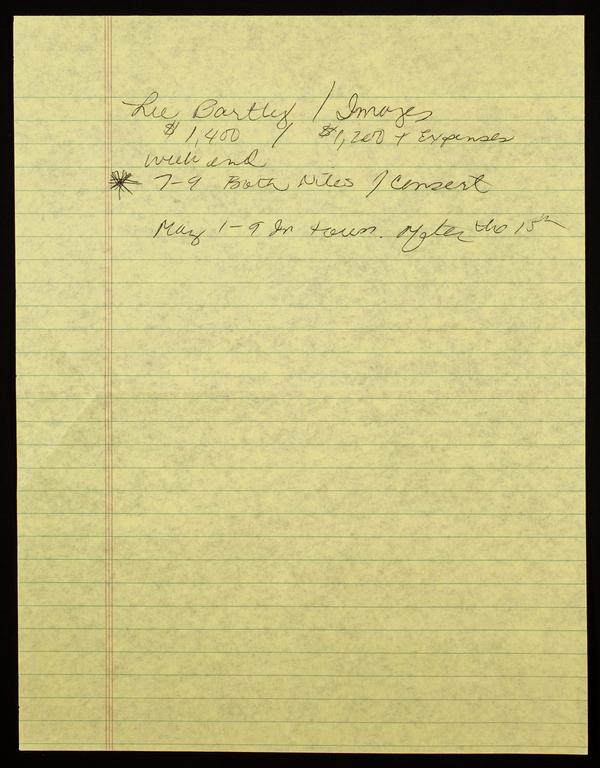 Lee Bartley / Images
$1,400 / $1,200 + Expenses
Weekend
* 7-9 Both Nites / Consert
May 1-9 In town. After the 15th